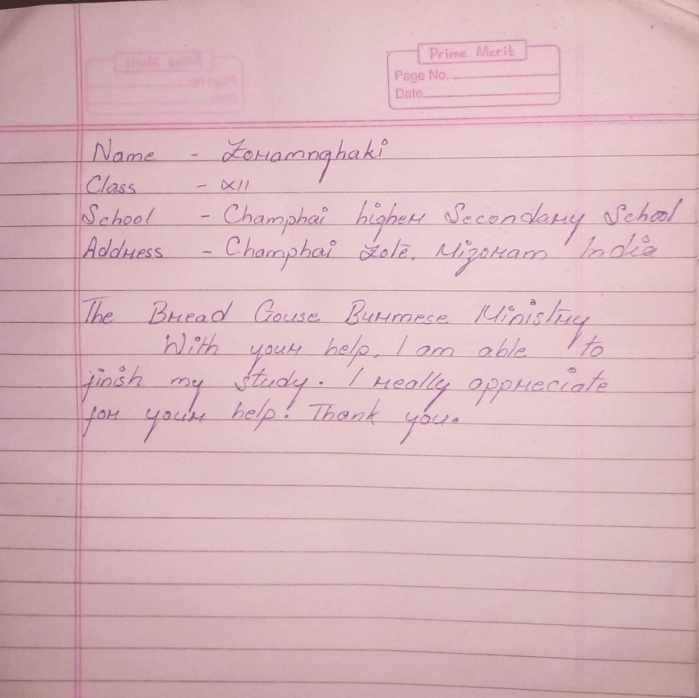 Prime Merit
Page No.
Date
Name - Zoramnghaki
Class - XII
School - Champhai higher Secondary School
Address - Champhai Zote, Mizoram India
The Bread Gouse Burmese Ministry
With your help, I am able to
finish my study. I really appreciate
for your help. Thank you.